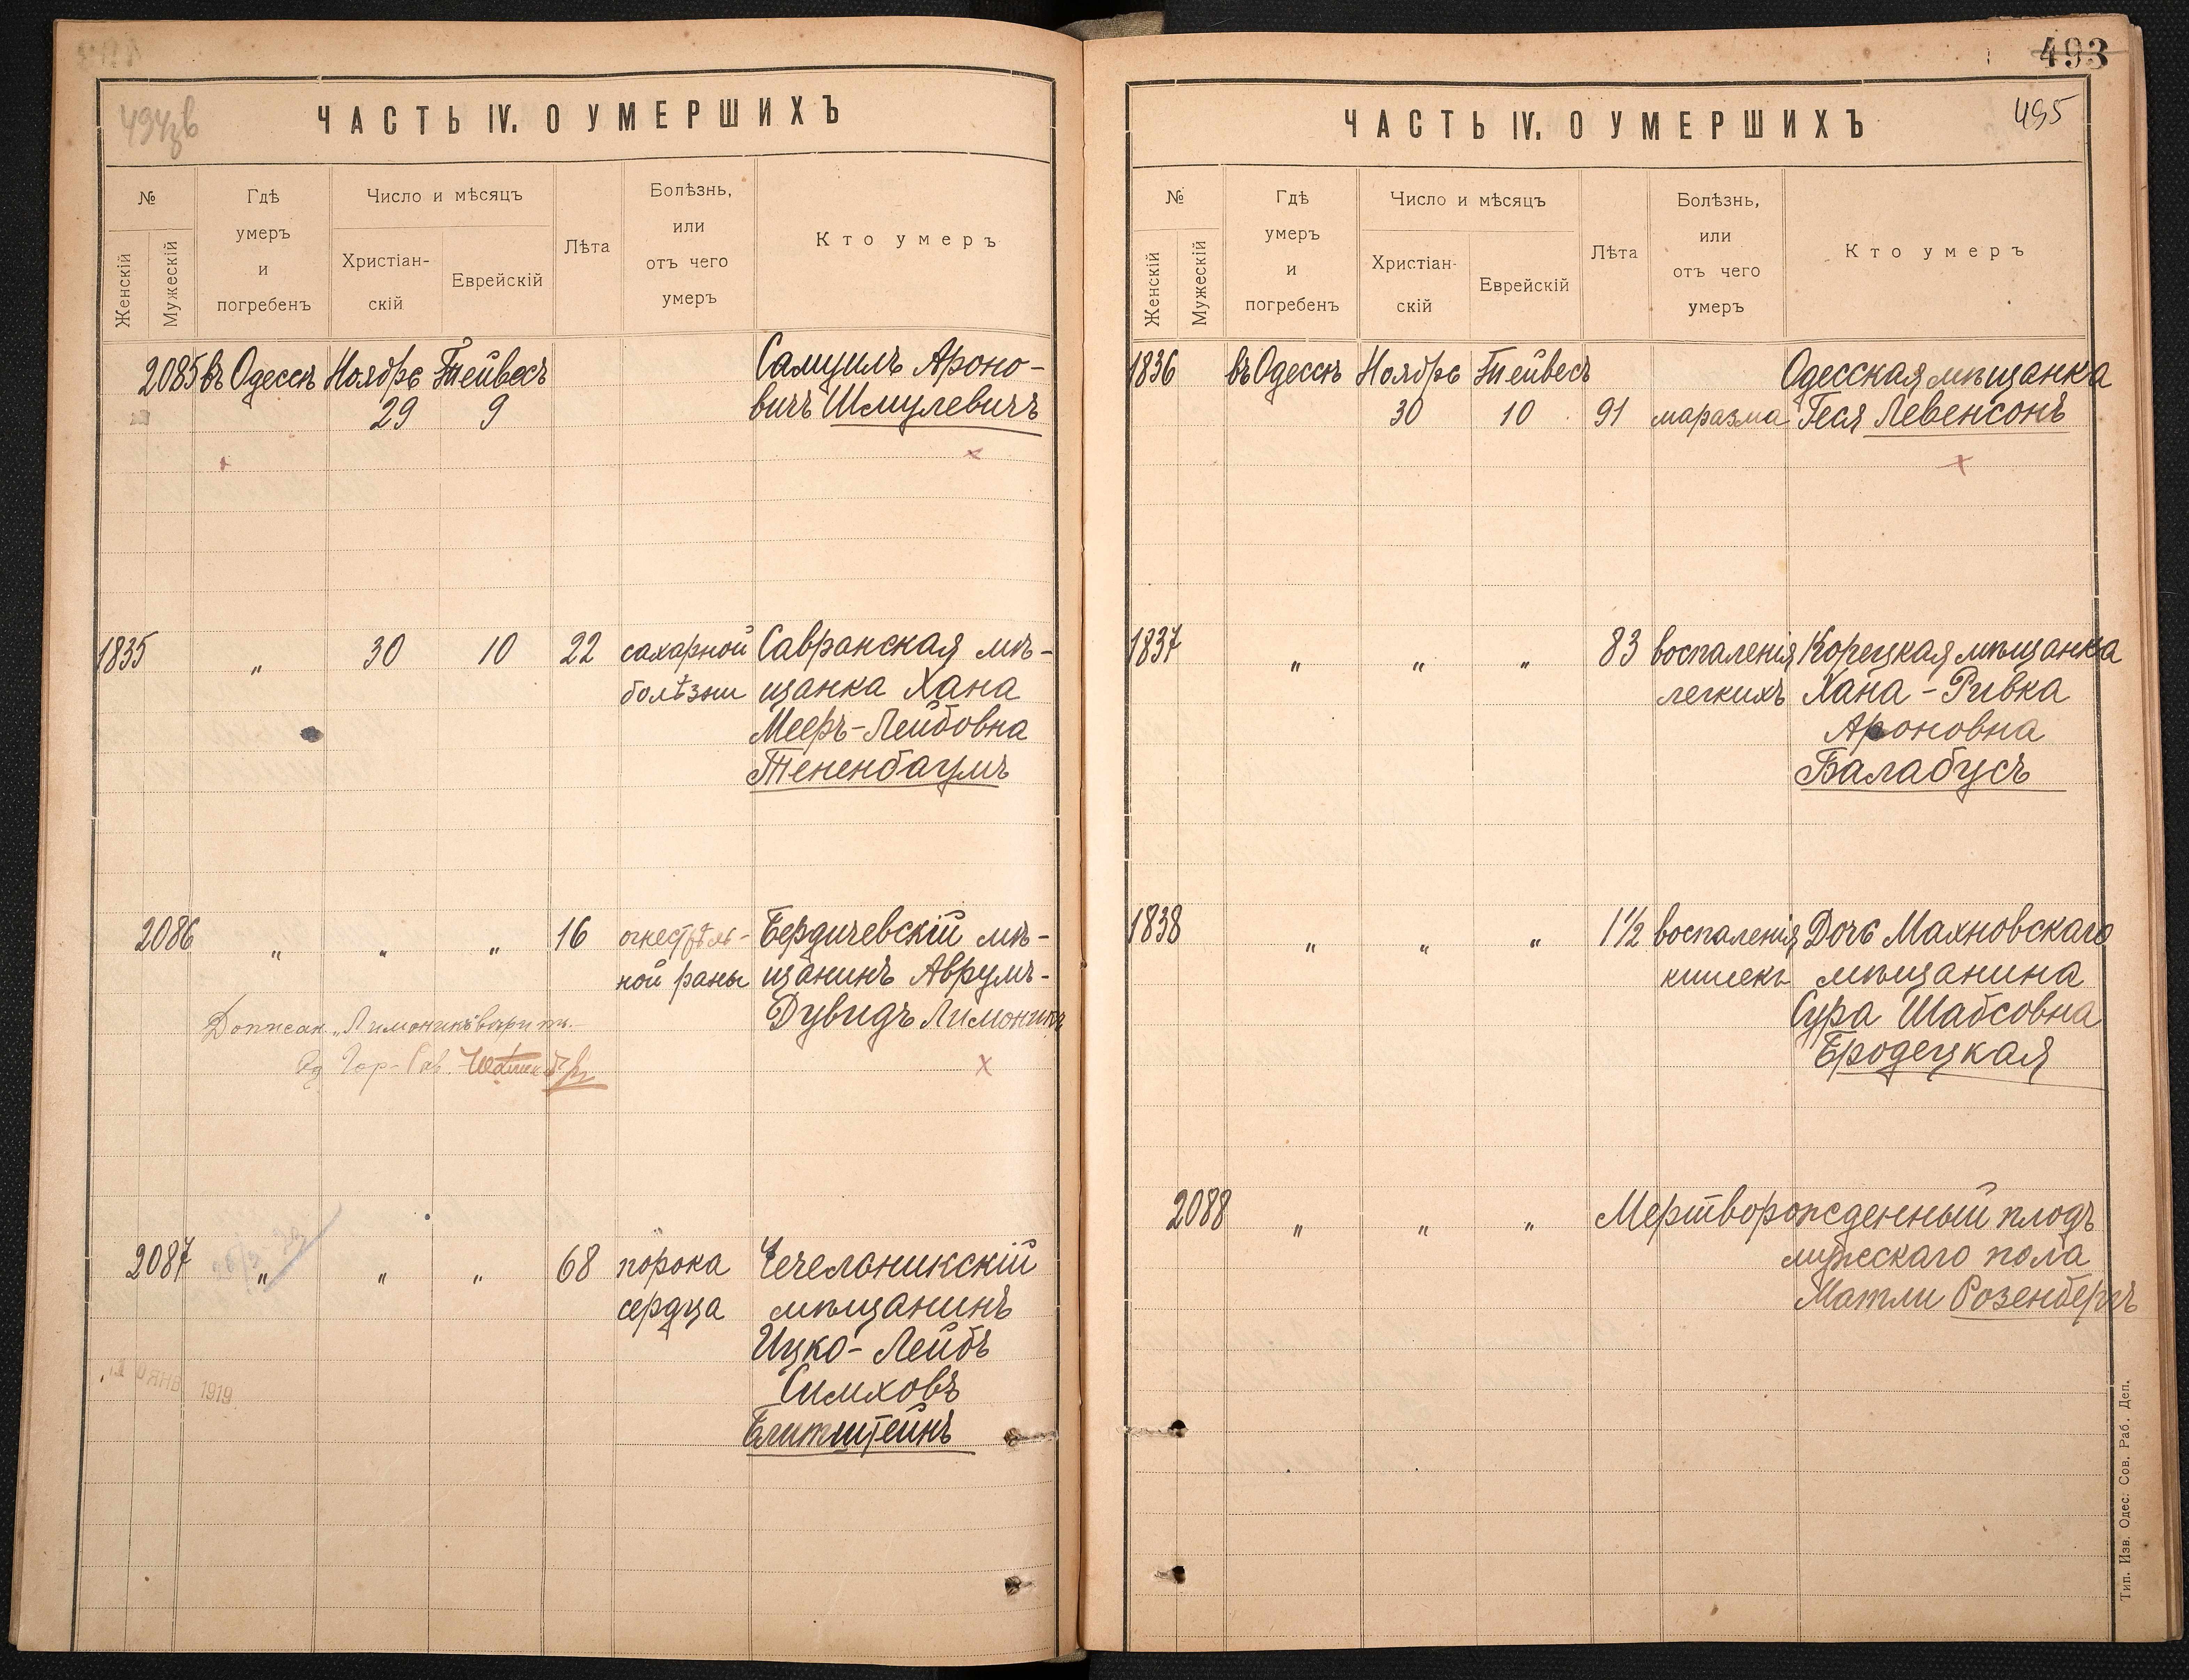 ЧАСТЬ IV. О УМЕРШИХЪ
№
Женскій
Мужескій
Гдѣ
умеръ
и
погребенъ
Число и мѣсяцъ
Христіан-
скій
Еврейскій
Лѣта
Болѣзнь,
или
отъ чего
умеръ
Кто умеръ
2085 въ Одессѣ Ноябрь Тейвесъ Самуилъ Ароно-
29 9 вичъ Шмулевичъ
1835 " 30 10 22 сахарной Савранская мѣ-
болѣзни щанка Хана
Мееръ-Лейбовна
Тененбаумъ
2086 " " " 16 огнестрѣль- Бердичевскій мѣ-
ной раны щанинъ Аврумъ-
Дувидъ Лимоникъ
2087 " " " 68 порока Чечельникскій
сердца мѣщанинъ
Ицко-Лейбъ
Симховъ
Блитштейнъ
ЯНВ 1919
493
495
ЧАСТЬ IV. О УМЕРШИХЪ
№
Женскій
Мужескій
Гдѣ
умеръ
и
погребенъ
Число и мѣсяцъ
Христіан-
скій
Еврейскій
Лѣта
Болѣзнь,
или
отъ чего
умеръ
Кто умеръ
1836 въ Одессѣ Ноябрь Тейвесъ Одесская мѣщанка
30 10 91 маразма Геся Левенсонъ
1837 " " " 83 воспаленія Корецкая мѣщанка
легкихъ Хана-Ривка
Ароновна
Балабусъ
1838 " " " 1½ воспаленія Дочь Махновскаго
кишекъ мѣщанина
Сура Шабсовна
Бродецкая
2088 " " " Мертворожденный плодъ
мужескаго пола
Матли Розенбергъ
Тип. Изв. Одес. Сов. Раб. Деп.